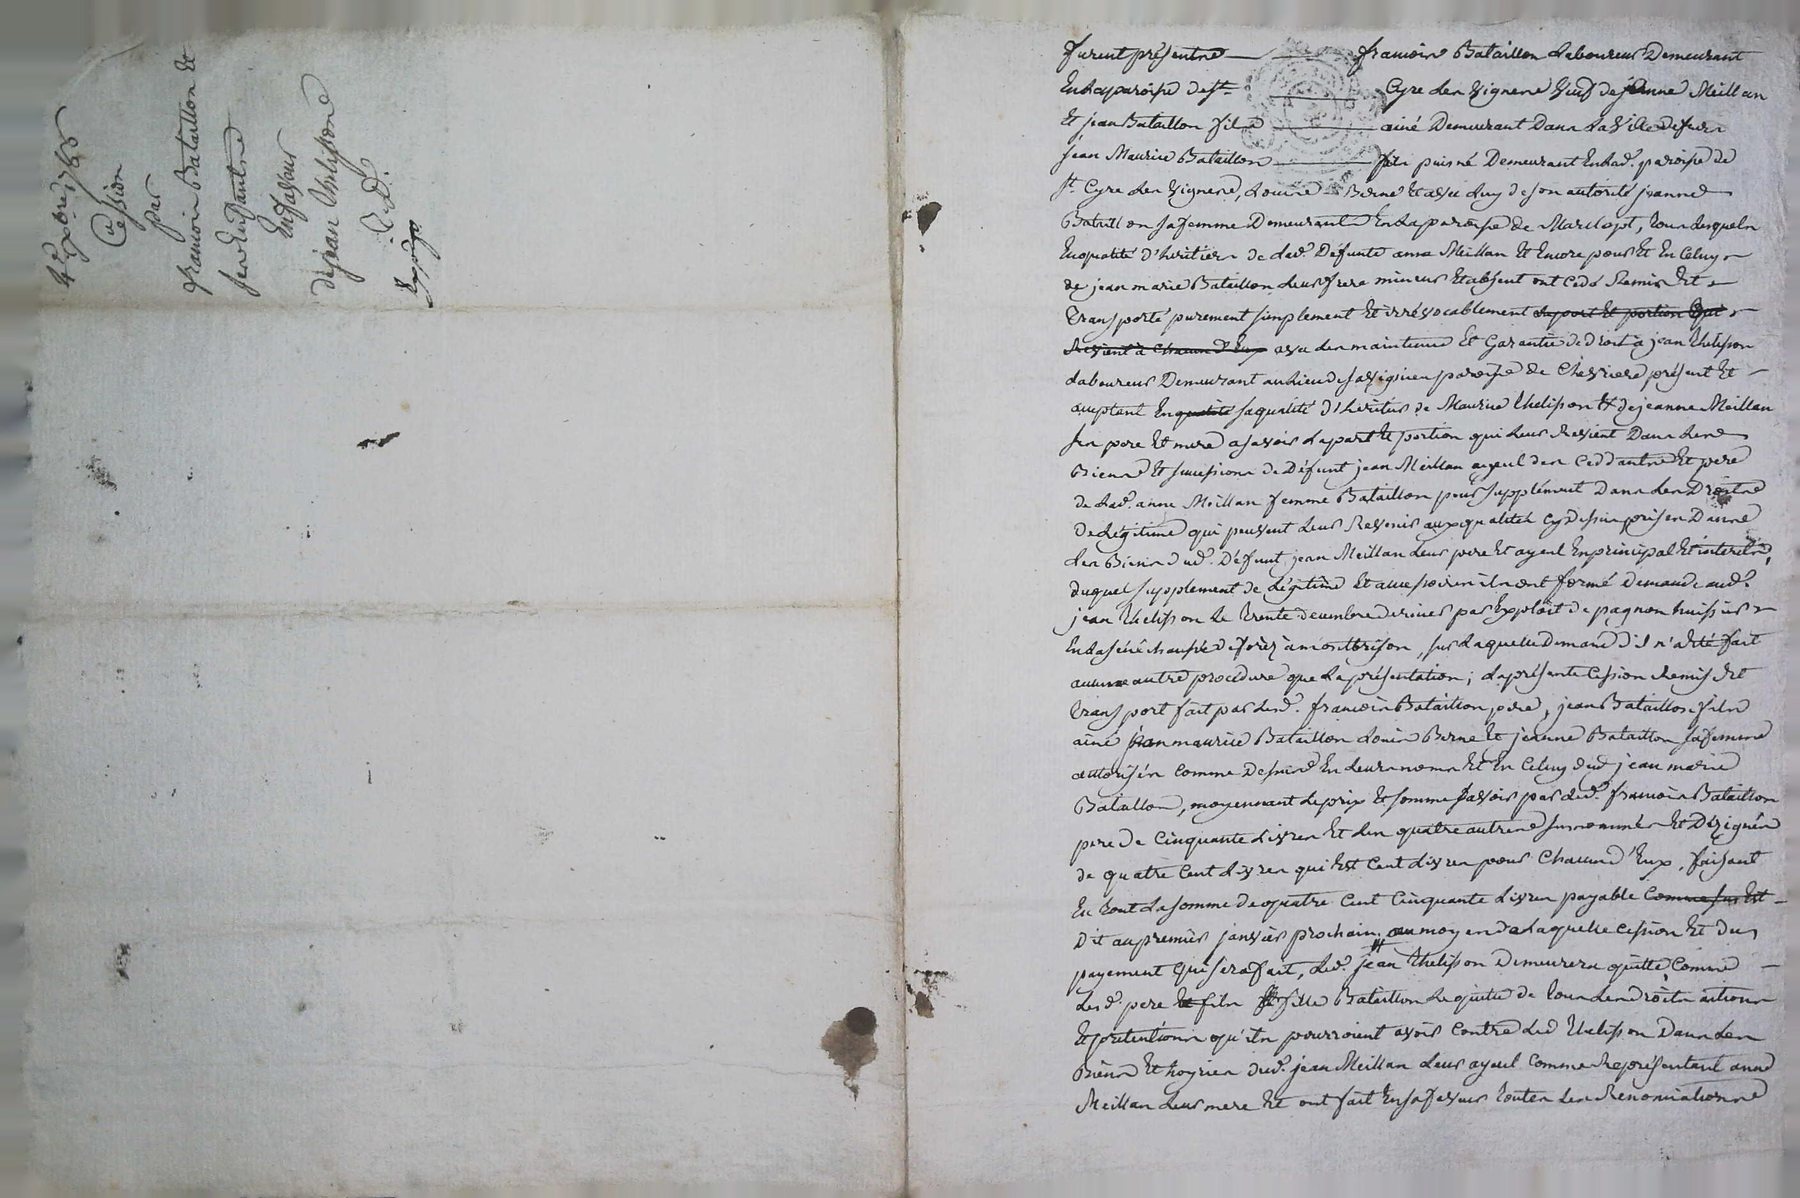 4e xbre 1765
Cession
par
francois Bataillon Et
ses Enfants
En faveur
de jean Thelisson
C. D.
Expédié
furent présents francois Bataillon Laboureur Demeurant
En la paroisse de st. Cyre Les Vignes Veuf de jeanne Meillan
Et jean Bataillon fils ainé Demeurant Dans La Ville de feurs
jean Maurice Bataillon fils puisné Demeurant En lad. paroisse de
st. Cyre Les Vignes, Louis Berne Et avec Luy de son autorité jeanne
Bataillon sa femme Demeurants En La paroisse de Marclopt, tous Lesquels
En qualité d'héritiers de lad. Défunte anne Meillan Et Encore pour Et En Celuy
de jean marie Bataillon Leur frere mineur Et absent ont Cedé Remis Et
Transporté purement simplement Et irrévocablement la part Et portion qui
Revient à Chacun d'Eux avec Les maintenue Et Garantie de Droit à jean Thelisson
Laboureur Demeurant au Lieu de paroisse de Chevriere présent Et
acceptant En qualité sa qualité d'héritier de Maurice Thelisson Et de jeanne Meillan
ses pere Et mere a savoir La part Et portion qui Leur Revient Dans Les
Biens Et successions de Défunt jean Meillan ayeul des Ceddants Et pere
de Lad. anne Meillan femme Bataillon pour supplément Dans Les Droits
De Légitime qui peuvent Leur Revenir aux qualités Cy dessus prises Dans
Les Biens dud. Défunt jean Meillan Leur pere Et ayeul En principal Et intérêts,
duquel supplement de Légitime Et accessoires ils ont formé Demande aud.
jean Thelisson Le Trente decembre dernier par Exploit de pagnon huissier
En La sénéchaussée de forez à montbrison, sur Laquelle Demande il n'a Eté fait
aucune autre procedure que La présentation; La présente Cession Remise Et
Transport fait par Lesd. francois Bataillon pere, jean Bataillon fils
ainé jean maurice Bataillon Louis Berne Et jeanne Bataillon sa femme
autorisée Comme Dessus En Leurs noms Et En Celuy dud. jean marie
Bataillon, moyennant Le prix Et somme savoir par Led. francois Bataillon
pere De Cinquante Livres Et Les quatre autres surnommés Et Désignés
de quatre Cent Livres qui Est Cent Livres pour Chacun d'Eux, faisant
En tout La somme de quatre Cent Cinquante Livres payable Comme sus Est
Dit au premier janvier prochain, au moyen de Laquelle Cession Et du
payement qui sera fait, Led. jean Thelisson Demeurera quitte, Comme
Lesd. pere Et fils Et fille Bataillon Le quitte de tous Les Droits actions
Et prétentions qu'ils pourroient avoir Contre Led Thelisson Dans Les
Biens Et hoyries dud. jean Meillan Leur ayeul Comme Représentant anne
Meillan Leur mere Et ont fait En sa faveur toutes Les Renonciations